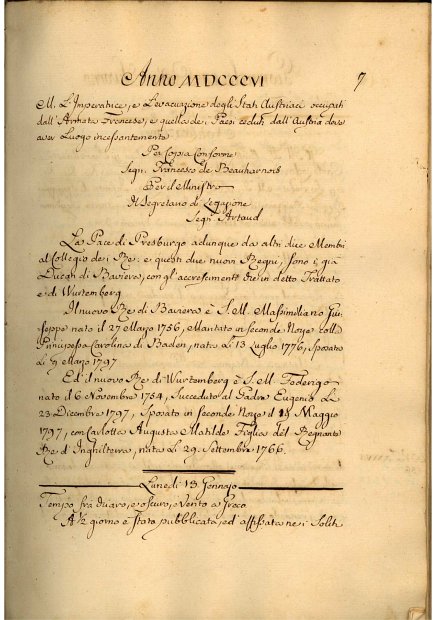 Anno MDCCCVI 7
M. L'Imperatrice, e L'evacuazione degli Stati Austriaci occupati
dall'Armata Francese, e quella dei Paesi ceduti dall'Austria deve
aver Luogo incessantemente
Per Copia Conforme
Segn. Francesco de Beauharnois
Per il Ministro
Il Segretario di Legazione
Segn. Artaud
La Pace di Presburgo adunque da altri due Membri
al Collegio dei Re: e questi due nuovi Regni, sono i già
Ducati di Baviera, con gl'accrescimenti in detto Trattato
e di Wurtemberg
Il nuovo Re di Baviera è S. M. Massimiliano Giu-
seppe nato il 27 Marzo 1756, Maritato in seconde Noze colla
Principessa Carolina di Baden, nata Li 13 Luglio 1776, sposata
Li 9 Marzo 1797
Ed il nuovo Re di Wurtemberg è S. M. Federigo
nato il 6 Novembre 1754, Succeduto al Padre Eugenio Li
23 Dicembre 1797, Sposato in seconde Noze il 18 Maggio
1797, con Carlotta Augusta Matilde Figlia del Regnante
Re d'Inghilterra, nata Li 29. Settembre 1766.
Lunedi 13 Gennajo
Tempo frà chiaro, e oscuro, Vento a Greco
A ½ giorno è stata pubblicata, ed' affissata nei Soliti